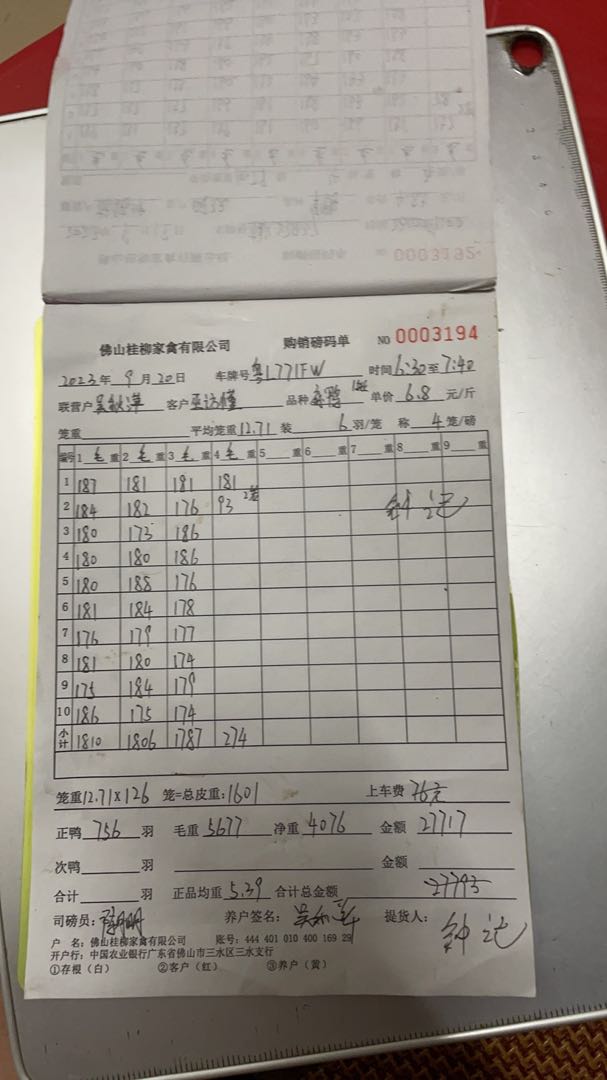 0003195
佛山桂柳家禽有限公司 购销磅码单 NO 0003194
2023年 9月20日 车牌号 粤L771FW 时间 6:30至7:40
联营户 客户 品种 单价 6.8 元/斤
笼重 平均笼重12.71 装 6 羽/笼 称 4 笼/磅
编号 1 毛 重 2 毛 重 3 毛 重 4 毛 重 5 重 6 重 7 重 8 重 9 重
1 187 181 181 181
2 184 182 176 93 2笼 钟记
3 180 173 186
4 180 180 186
5 180 188 176
6 181 184 178
7 176 179 177
8 181 180 174
9 175 184 179
10 186 175 174
小计 1810 1806 1787 274
笼重12.71×126 笼=总皮重:1601 上车费 76元
正鸭 756 羽 毛重 5677 净重 4076 金额 27717
次鸭 羽 金额
合计 羽 正品均重 5.39 合计总金额 27793
司磅员: 养户签名: 提货人: 钟记
户 名:佛山桂柳家禽有限公司 账号:444 401 010 400 169 29
开户行:中国农业银行广东省佛山市三水区三水支行
①存根(白) ②客户(红) ③养户(黄)